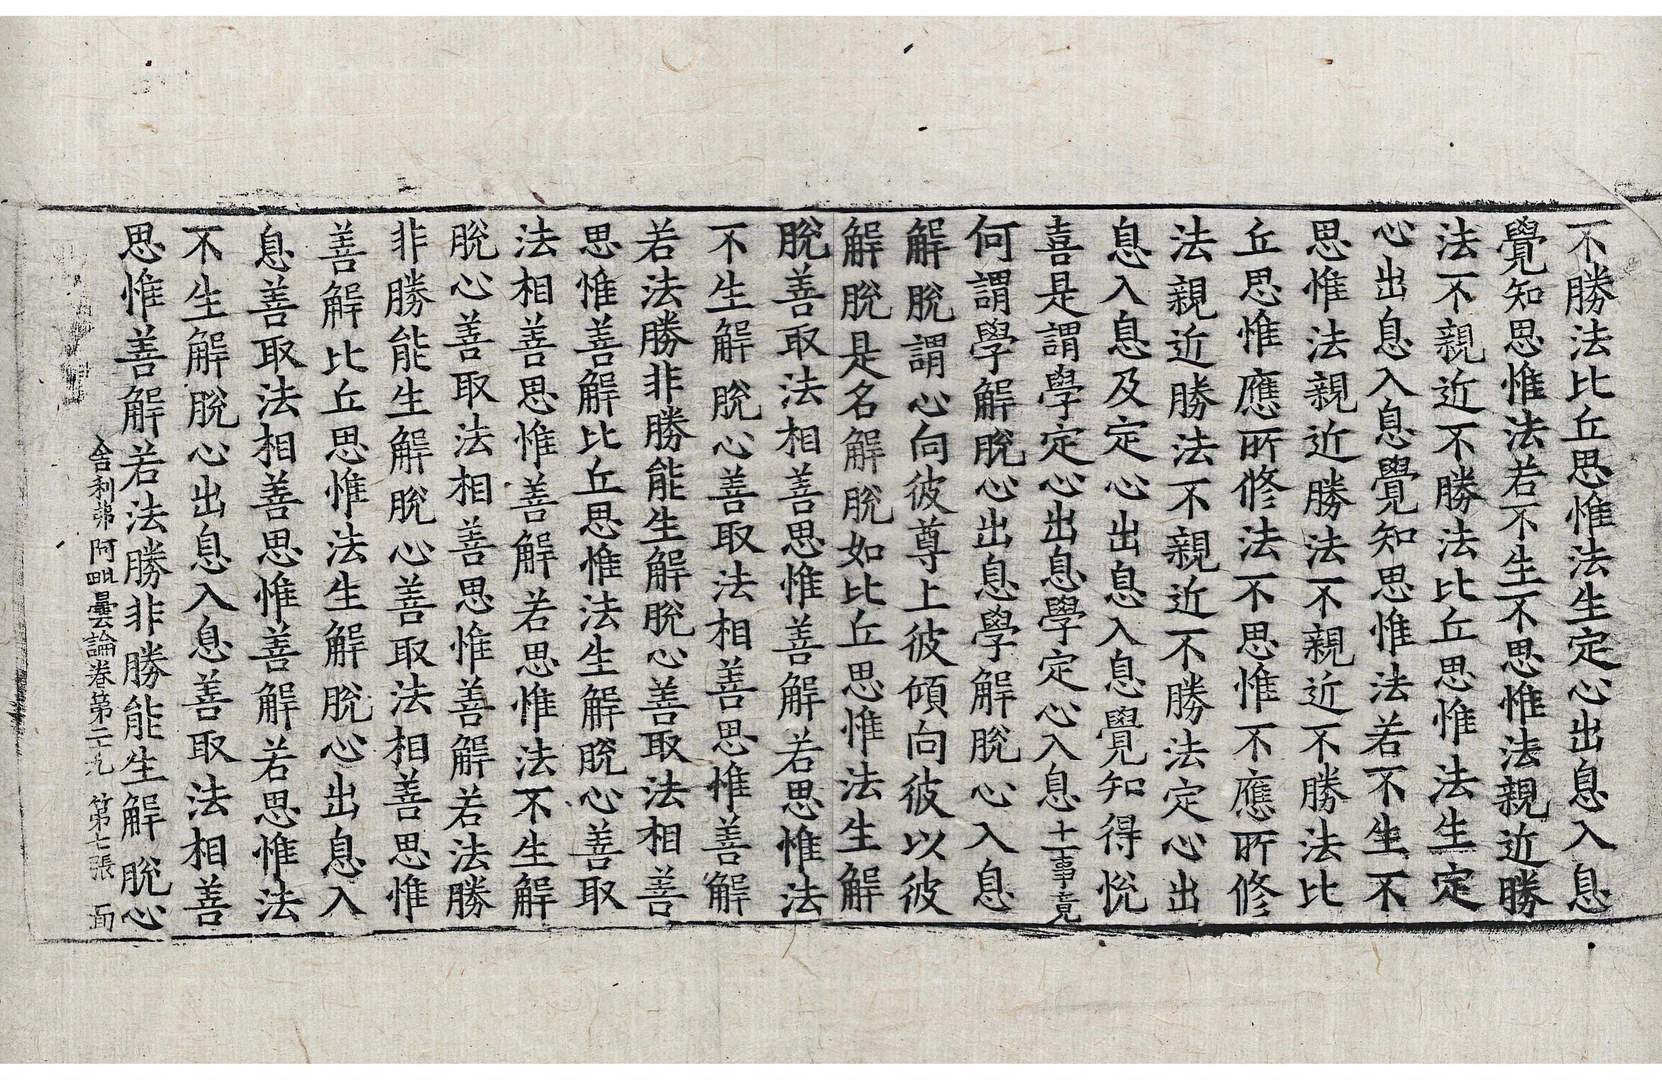 不勝法比丘思惟法生定心出息入息
覺知思惟法若不生不思惟法親近勝
法不親近不勝法比丘思惟法生定
心出息入息覺知思惟法若不生不
思惟法親近勝法不親近不勝法比
丘思惟應所修法不思惟不應所修
法親近勝法不親近不勝法定心出
息入息及定心出息入息覺知得悅
喜是謂學定心出息學定心入息十一事竟
何謂學解脫心出息學解脫心入息
解脫謂心向彼尊上彼傾向彼以彼
解脫是名解脫如比丘思惟法生解
脫善取法相善思惟善解若思惟法
不生解脫心善取法相善思惟善解
若法勝非勝能生解脫心善取法相善
思惟善解比丘思惟法生解脫心善取
法相善思惟善解若思惟法不生解
脫心善取法相善思惟善解若法勝
非勝能生解脫心善取法相善思惟
善解比丘思惟法生解脫心出息入
息善取法相善思惟善解若思惟法
不生解脫心出息入息善取法相善
思惟善解若法勝非勝能生解脫心
舍利弗阿毗曇論卷第二十九 第七張 面